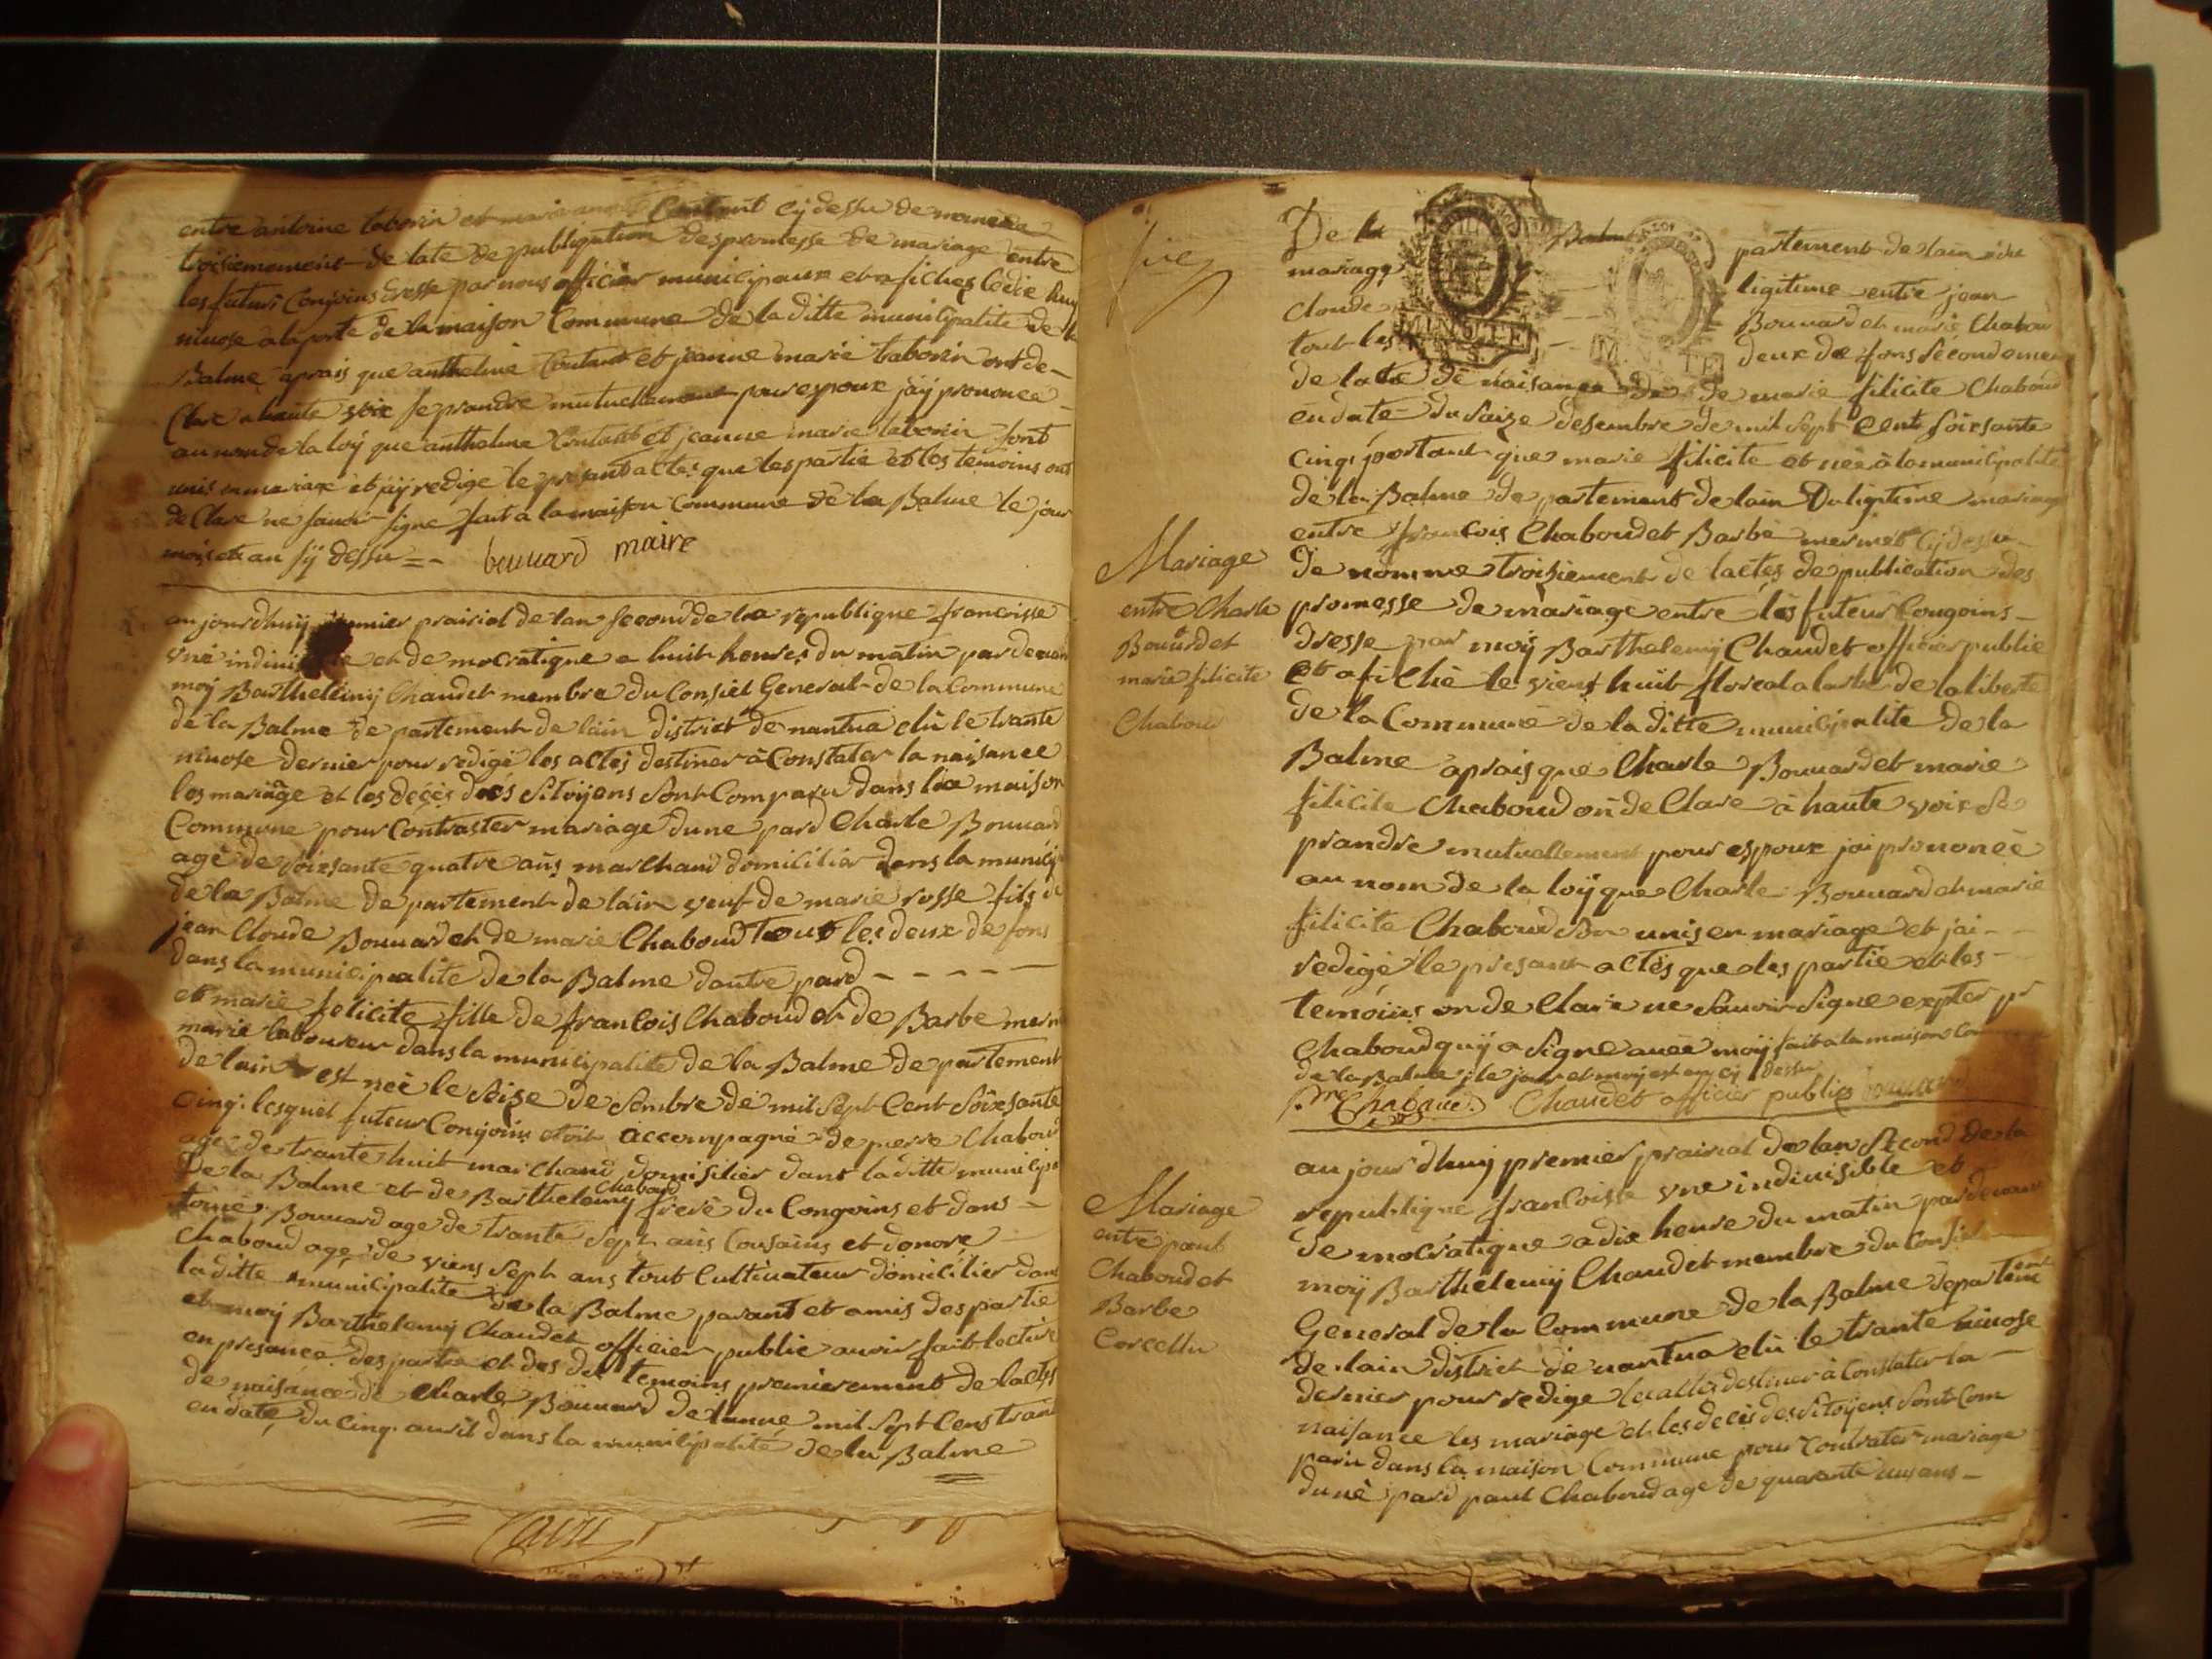 entre antoine laborin et marie anne Coutant cy dessu de nomée
troisiemement de late de publiquation des promesse de mariage entre
les futur Conjoins dresse par nous officier municipaux et afichez le dix huy
nivose a la porte de la maison Commune de la ditte municipalite de la
Balme aprais que anthelme Coutant et jeanne marie laborin ont de-
Clare a haute voix se prandre mutuellement pour espoux jaÿ prononcé
au nom de la loÿ que anthelme Coutant et jeanne marie laborin sont
unis en mariage et jaÿ redige le presant actes que les partie et les temoins ont
de Clare ne savoir signe fait a la maison Commune de la Balme le jour
mois et an sÿ dessu = - bouuard maire
aujourdhuij premier prairial de lan second de la republique francoisse
vne indivisible et de mocratique a huit heures du matin par devant
moÿ Barthelemÿ Chaudet membre du Consiel General de la Commune
de la Balme de partement de lain district de nantua élü le trante
nivose dernier pour redigé les actes destiner a Constater la naisance
les mariage et les decés des sitoÿens sont Comparu dans la maison
Commune pour Contracter mariage dune pard Charle Bouuard
agé de soixsante quatre ans marchand domicilier dans la municip
de la Balme de partement de lain veuf de marie rosse fils de
jean Cloude Bouuard et de marie Chaboud tout les deux de fons
dans la municipalite de la Balme dautre pard - - - - -
et marie felicite fille de francois Chaboud et de Barbe mern
marie laboureur dans la municipalite de la Balme de partement
de lain est neé le seize de sembre de mil sept Cent soixsante
Cinq. lesquel futeur Conjoins etoit accompagné de pierre Chaboud
agé de trante huit marchand domisilier dans la ditte municip
de la Balme et de Barthelemÿ Chaboud frere du Congoins et dans
toine Bouuard age de trante sept ans Cousains et donoré
Chaboud agé de viens sept ans tout Cultivateur domicilier dans
la ditte municipalite de la Balme parant et amis des partie
et moÿ Barthelemÿ Chaudet officier public avoir fait lecture
en presance des partie et des dit temoins premierement de lactes
de naisance de Charle Bouuard de lanné mil sept Cens trant
en date du Cinq. avril dans la municipalité de la Balme
De la Balme partement de lain du
mariage ligitime entre jean
Cloude Bouuard et marie Chaboud
tout les deux de fons secondement
de late de naisance de de marie filicite Chaboud
en date du saize desembre de mil sept Cent soixsante
Cinq, portant que marie filicite et neé a la municipalite
de la Balme de partement de lain du ligitime mariage
entre francois Chaboud et Barbe mermet cÿ dessu
Mariage
entre Charle
Bouuard et
marie filicite
Chabou
de nomme troisiement de lactes de publication des
promesse de mariage entre les futeur Congoins
dresse par moÿ Barthelemÿ Chaudet officier public
et afiché le viens huit floreal a larbre de la liberte
de la Commune de la ditte municipalite de la
Balme aprais que Charle Bouuard et marie
filicite Chaboud on de Clare a haute voix se
prandre mutuellement pour espoux jai prononcé
au nom de la loÿ que Charle Bouuard et marie
filicite Chaboud son unis en mariage et jai - -
redigé le presant actes que les partie et les -
temoins on de Clare ne savoir signe expter pr
Chaboud quÿ a signé aveé moÿ fait a la maison Commune
de la Balme le jour et moÿ et an cÿ dessu
Pre Chaboud Chaudet officier public bouuard
Mariage
entre paul
Chaboud et
Barbe
Corcellu
aujourdhuy premier prairial de lan second de la
republique francoisse vne indivisible et
de mocratique a dix heure du matin par devant
moÿ Barthelemÿ Chaudet membre du Consiel
General de la Commune de la Balme departement
de lain district de nantua élü le trante nivose
dernier pour redige les actes destiner a Constater la
naisance les mariage et les decés des sitoÿens sont Com
paru dans la maison Commune pour Contrater mariage
dune pard paul Chaboud age de quarante un ans -